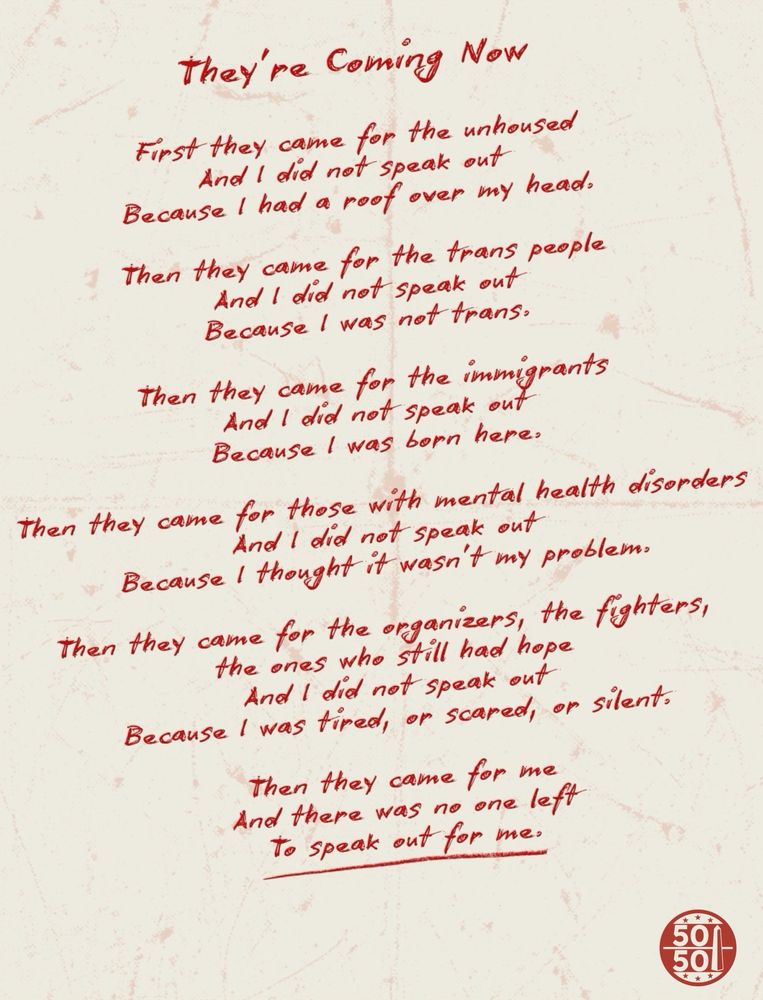 They're Coming Now
First they came for the unhoused
And I did not speak out
Because I had a roof over my head.
Then they came for the trans people
And I did not speak out
Because I was not trans.
Then they came for the immigrants
And I did not speak out
Because I was born here.
Then they came for those with mental health disorders
And I did not speak out
Because I thought it wasn't my problem.
Then they came for the organizers, the fighters,
the ones who still had hope
And I did not speak out
Because I was tired, or scared, or silent.
Then they came for me
And there was no one left
To speak out for me.
50
501